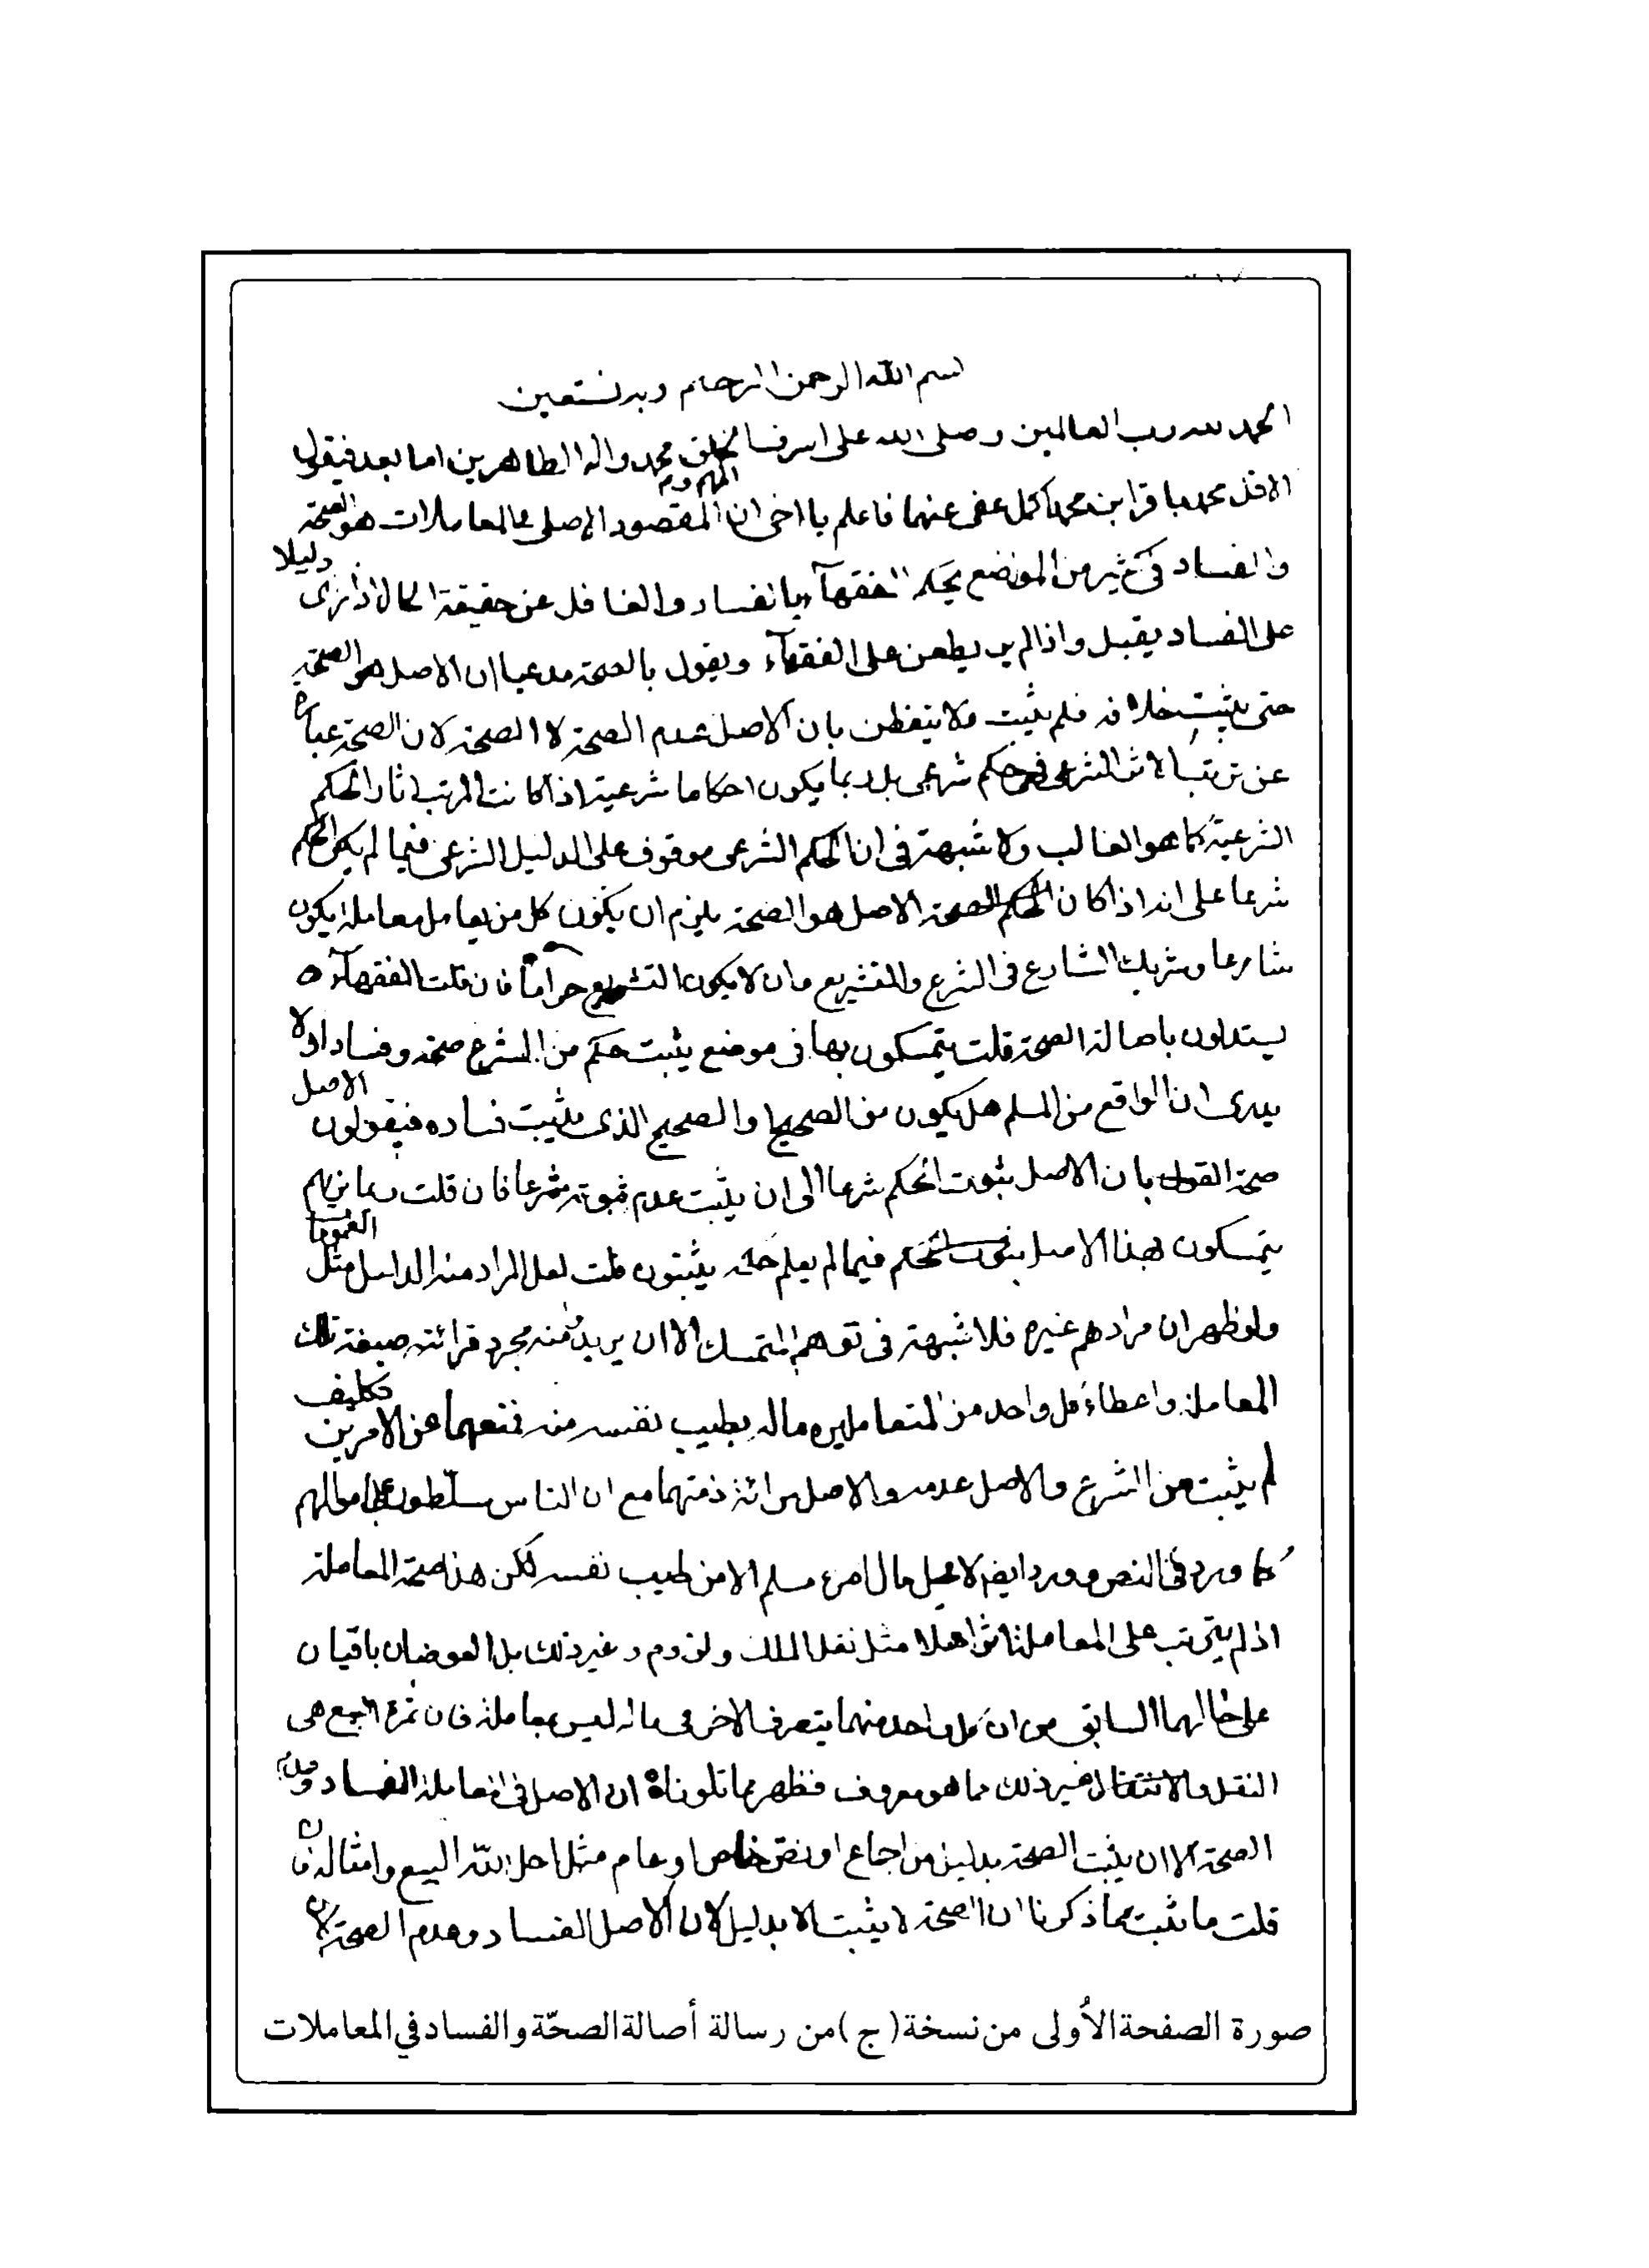 بسم الله الرحمن الرحيم وبه نستعين
الحمد لله رب العالمين وصلى الله على اشرف الخلق محمد واله الطاهرين اما بعد فيقول
الاقل محمد باقر ابن محمد اكمل عفى عنهما فاعلم يا اخى ان المهم و المقصود الاصلى المعاملات هو الصحة
والفساد فى كثير من المواضع يحكم الفقهاء بالفساد والغافل عن حقيقة الحال اذا يرى دليلا
على الفساد يقبل واذا لم ير يطعن على الفقهاء ويقول بالصحة مدعيا ان الاصل هو الصحة
حتى يثبت خلافه فلم يثبت ولا يتفطن بان الاصل عدم الصحة لا الصحة لان الصحة عبارة
عن ترتب الاثر الشرعى حكم شرعى بل ربما يكون احكاما شرعية اذا كانت المرتب اثار الحكم
الشرعية كما هو الغالب ولا شبهة فى ان الحكم الشرعى موقوف على الدليل الشرعى فيما لم يكن الحكم
شرعا على انه اذا كان الحكم الصحة الاصل هو الصحة يلزم ان يكون كل من يعامل معاملة يكون
شارعا وشريك الشارع فى الشرع والتشريع وان لا يكون التشريع حراما فان قلت الفقهاء
يستدلون باصالة الصحة قلت يتمسكون بها فى موضع يثبت حكم من الشرع صحة وفسادا ولا
يدرى ان الواقع من المسلم هل يكون من الصحيح او الصحيح الذى يثبت فساده فيقولون الاصل
صحة القول بان الاصل ثبوت الحكم شرعا الى ان يثبت عدم ثبوته شرعا فان قلت ربما نريهم
يتمسكون بهذا الاصل بثبوت الحكم فيما لم يعلم حكمه يثبتون قلت لعل المراد منه الدليل مثل العموما
ولو ظهر ان مرادهم غيره فلا شبهة فى توهم المتمسك الا ان يريد منه مجرد قرائته صيغة تلك
المعاملة واعطاء كل واحد من المتعاملين ماله بطيب نفسه منه فمنعهما عن الامرين تكليف
لم يثبت من الشرع والاصل عدمه والاصل برائة ذمتهما مع ان الناس سلّطون على اموالهم
كما ورد فى النص وورد ايضا لا يحل مال امرء مسلم الا من طيب نفسه لكن هذا صحة المعاملة
اذ لم يترتب على المعاملة اثر اصلا مثل نقل الملك ولزوم و غير ذلك بل العوضان باقيان
على حالهما السابق من ان كل واحد منهما يتصرف الاخر فى ماله ليس بمعاملة فان ثمرة البيع هى
النقل والانتقال غير ذلك مما هو معروف فظهر مما تلوناه ان الاصل فى المعاملة الفساد وعدم
الصحة الا ان يثبت الصحة بدليل من اجماع او نص خاص او عام مثل احل الله البيع وامثاله فان
قلت ما يثبت مما ذكرنا ان الصحة لا يثبت الا بدليل لان الاصل الفساد وعدم الصحة لان
صورة الصفحة الأولى من نسخة (ج) من رسالة أصالة الصحّة والفساد في المعاملات